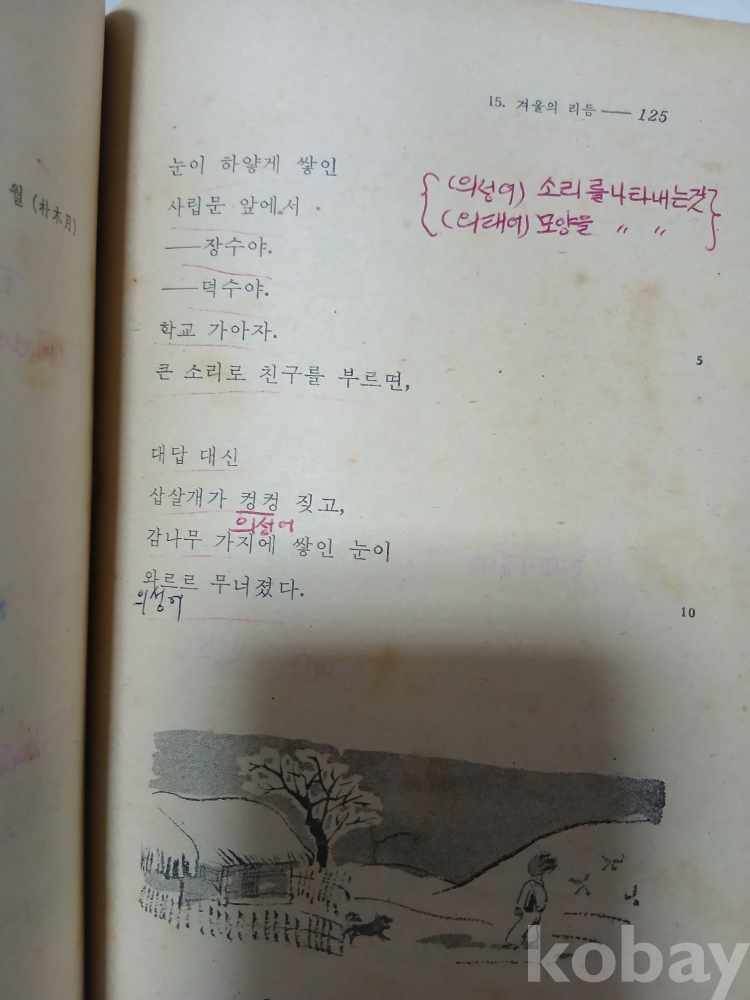 15. 겨울의 리듬 — 125
월 (朴木月)
눈이 하얗게 쌓인
사립문 앞에서
(의성어) 소리를 나타내는것
(의태어) 모양을 〃 〃
—장수야.
—덕수야.
학교 가아자.
5
큰 소리로 친구를 부르면,
대답 대신
삽살개가 컹컹 짖고,
의성어
감나무 가지에 쌓인 눈이
와르르 무너졌다.
의성어
10
kobay